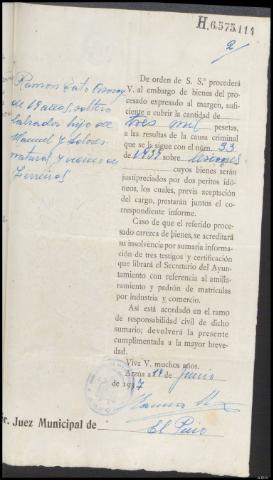 H.6.575.111
2/
Ramon
de 69 años, soltero
labrador hijo de
Manuel y Dolores
natural y vecino de
De orden de S. S.ª procederá
V. al embargo de bienes del pro-
cesado expresado al margen, sufi-
ciente a cubrir la cantidad de
tres mil pesetas,
a las resultas de la causa criminal
que se le sigue con el núm. 33
de 1937 sobre
cuyos bienes serán
justipreciados por dos peritos idó-
neos, los cuales, previa aceptación
del cargo, prestarán juntos el co-
rrespondiente informe.
Caso de que el referido proce-
sado carezca de bienes, se acreditará
su insolvencia por sumaria informa-
ción de tres testigos y certificación
que librará el Secretario del Ayun-
tamiento con referencia al amilla-
ramiento y padrón de matrículas
por industria y comercio.
Así está acordado en el ramo
de responsabilidad civil de dicho
sumario; devolverá la presente
cumplimentada a la mayor breve-
dad.
Viva V. muchos años.
Arzúa 14 Junio
de 1937
Sr. Juez Municipal de
El Pino